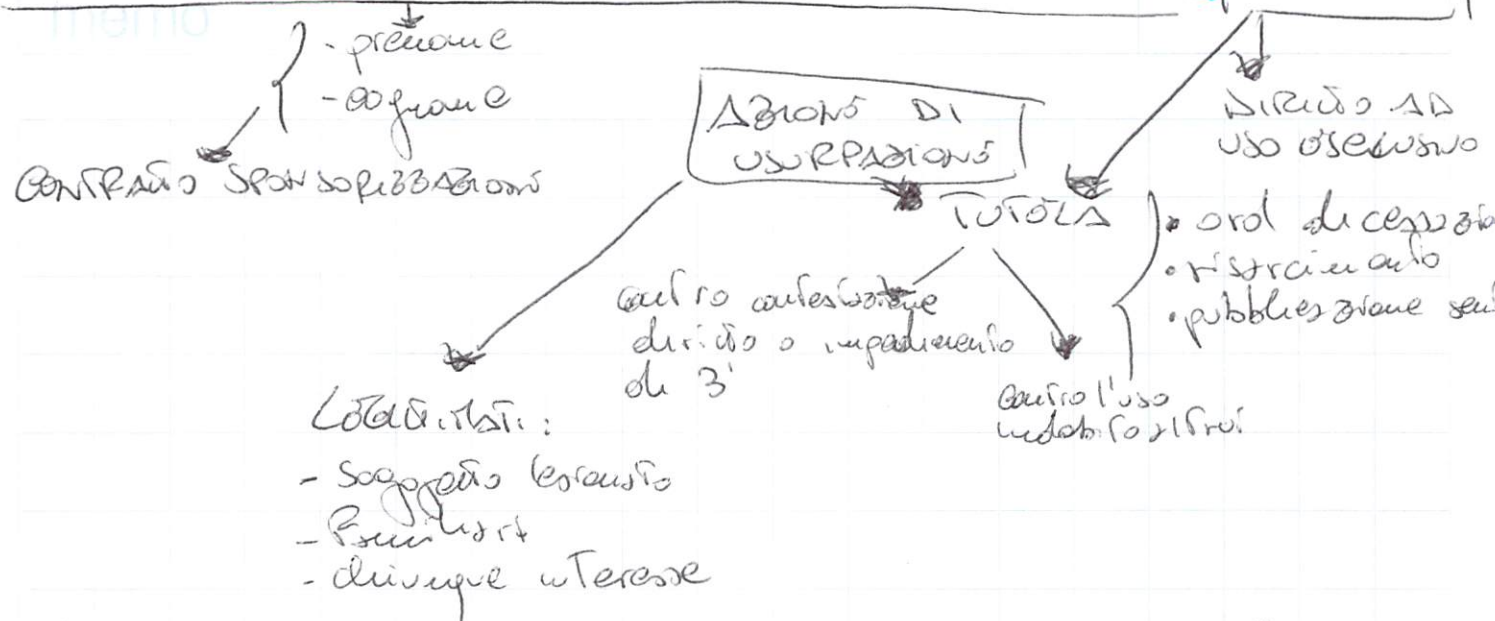 memo
- prenome
- cognome
CONTRATTO SPONSORIZZAZIONE
AZIONE DI
USURPAZIONE
DIRITTO AD
USO ESCLUSIVO
TUTELA
• ord di cessazio
• risarcimento
• pubblicazione sen
contro contestazione
diritto o impedimento
di 3'
contro l'uso
indebito altrui
LEGITTIMATI:
- Soggetto
- Familiari
- chiunque interesse